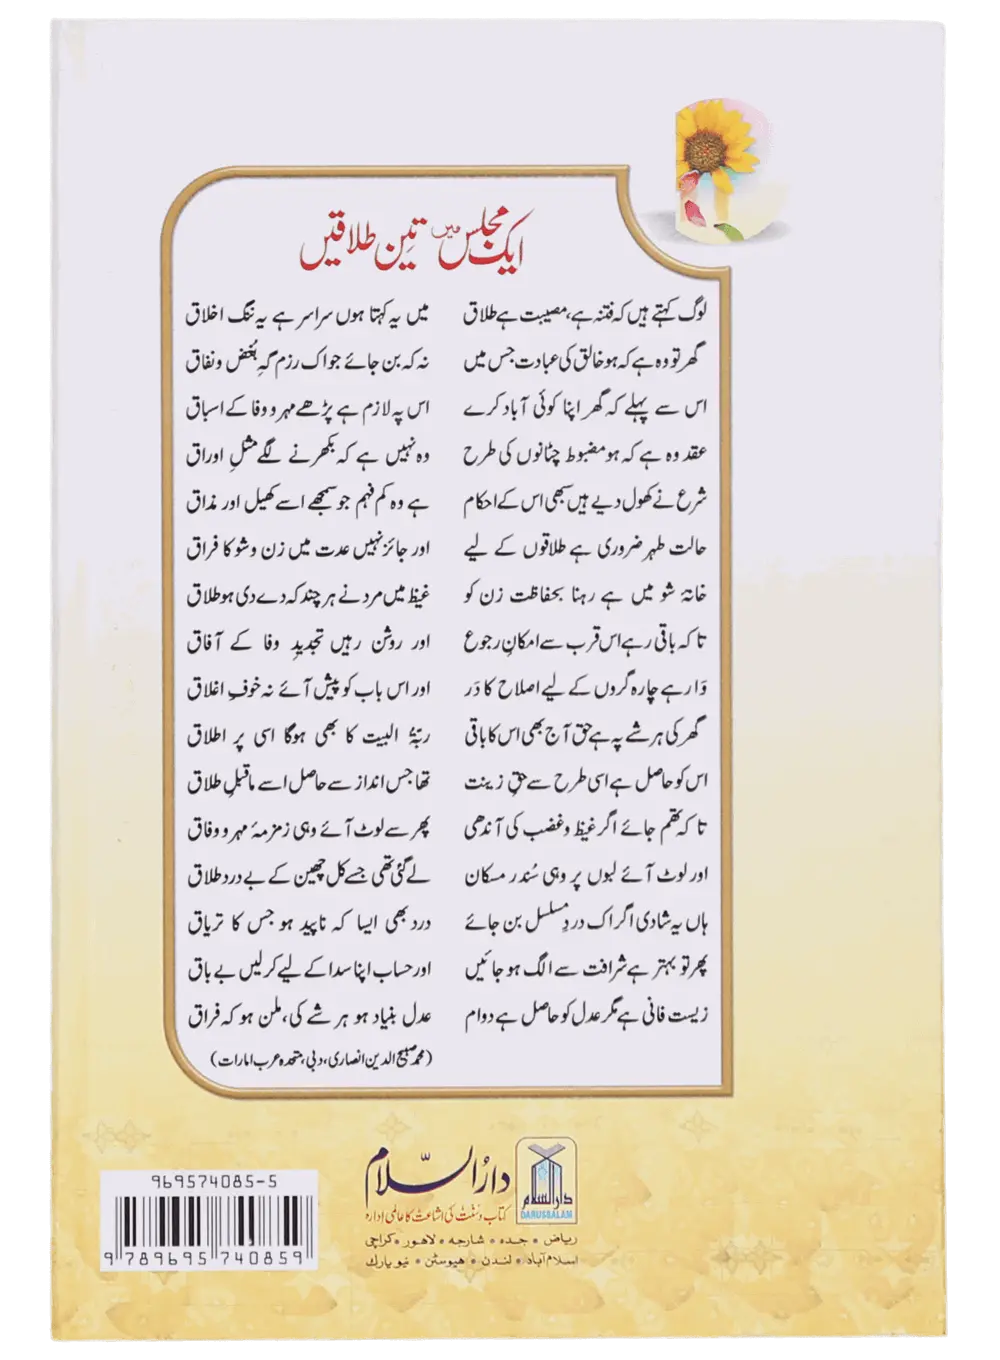 ایک مجلس میں تین طلاقیں
لوگ کہتے ہیں کہ فتنہ ہے، مصیبت ہے طلاق میں یہ کہتا ہوں سراسر ہے یہ ننگ اخلاق
گھر تو وہ ہے کہ ہو خالق کی عبادت جس میں نہ کہ بن جائے جو اک رزم گہِ بُغض و نفاق
اس سے پہلے کہ گھر اپنا کوئی آباد کرے اس پہ لازم ہے پڑھے مہر و وفا کے اسباق
عقد وہ ہے کہ ہو مضبوط چٹانوں کی طرح وہ نہیں ہے کہ بکھرنے لگے مثلِ اوراق
شرع نے کھول دیے ہیں سبھی اس کے احکام ہے وہ کم فہم جو سمجھے اسے کھیل اور مذاق
حالت طہر ضروری ہے طلاقوں کے لیے اور جائز نہیں عدت میں زن و شو کا فراق
خانۂ شو میں ہے رہنا بحفاظت زن کو غیظ میں مرد نے ہر چند کہ دے دی ہو طلاق
تاکہ باقی رہے اس قرب سے امکانِ رجوع اور روشن رہیں تجدیدِ وفا کے آفاق
وَا رہے چارہ گروں کے لیے اصلاح کا دَر اور اس باب کو پیش آئے نہ خوفِ اغلاق
گھر کی ہر شے پہ ہے حق آج بھی اس کا باقی ربّۃُ البیت کا بھی ہوگا اسی پر اطلاق
اس کو حاصل ہے اسی طرح سے حقِ زینت تھا جس انداز سے حاصل اسے ماقبلِ طلاق
تاکہ تھم جائے اگر غیظ و غضب کی آندھی پھر سے لوٹ آئے وہی زمزمۂ مہر و وفاق
اور لوٹ آئے لبوں پر وہی سُندر مسکان لے گئی تھی جسے کل چھین کے بے درد طلاق
ہاں یہ شادی اگر اک دردِ مسلسل بن جائے درد بھی ایسا کہ ناپید ہو جس کا تریاق
پھر تو بہتر ہے شرافت سے الگ ہو جائیں اور حساب اپنا سدا کے لیے کر لیں بے باق
زیست فانی ہے مگر عدل کو حاصل ہے دوام عدل بنیاد ہو ہر شے کی، ملن ہو کہ فراق
(محمد صبیح الدین انصاری، دبی، متحدہ عرب امارات)
دارالسلام
DARUSSALAM
دارُالسّلام
کتاب و سنّت کی اشاعت کا عالمی ادارہ
ریاض • جدہ • شارجہ • لاہور • کراچی
اسلام آباد • لندن • ہیوسٹن • نیو یارک
969574085-5
9 789695 740859